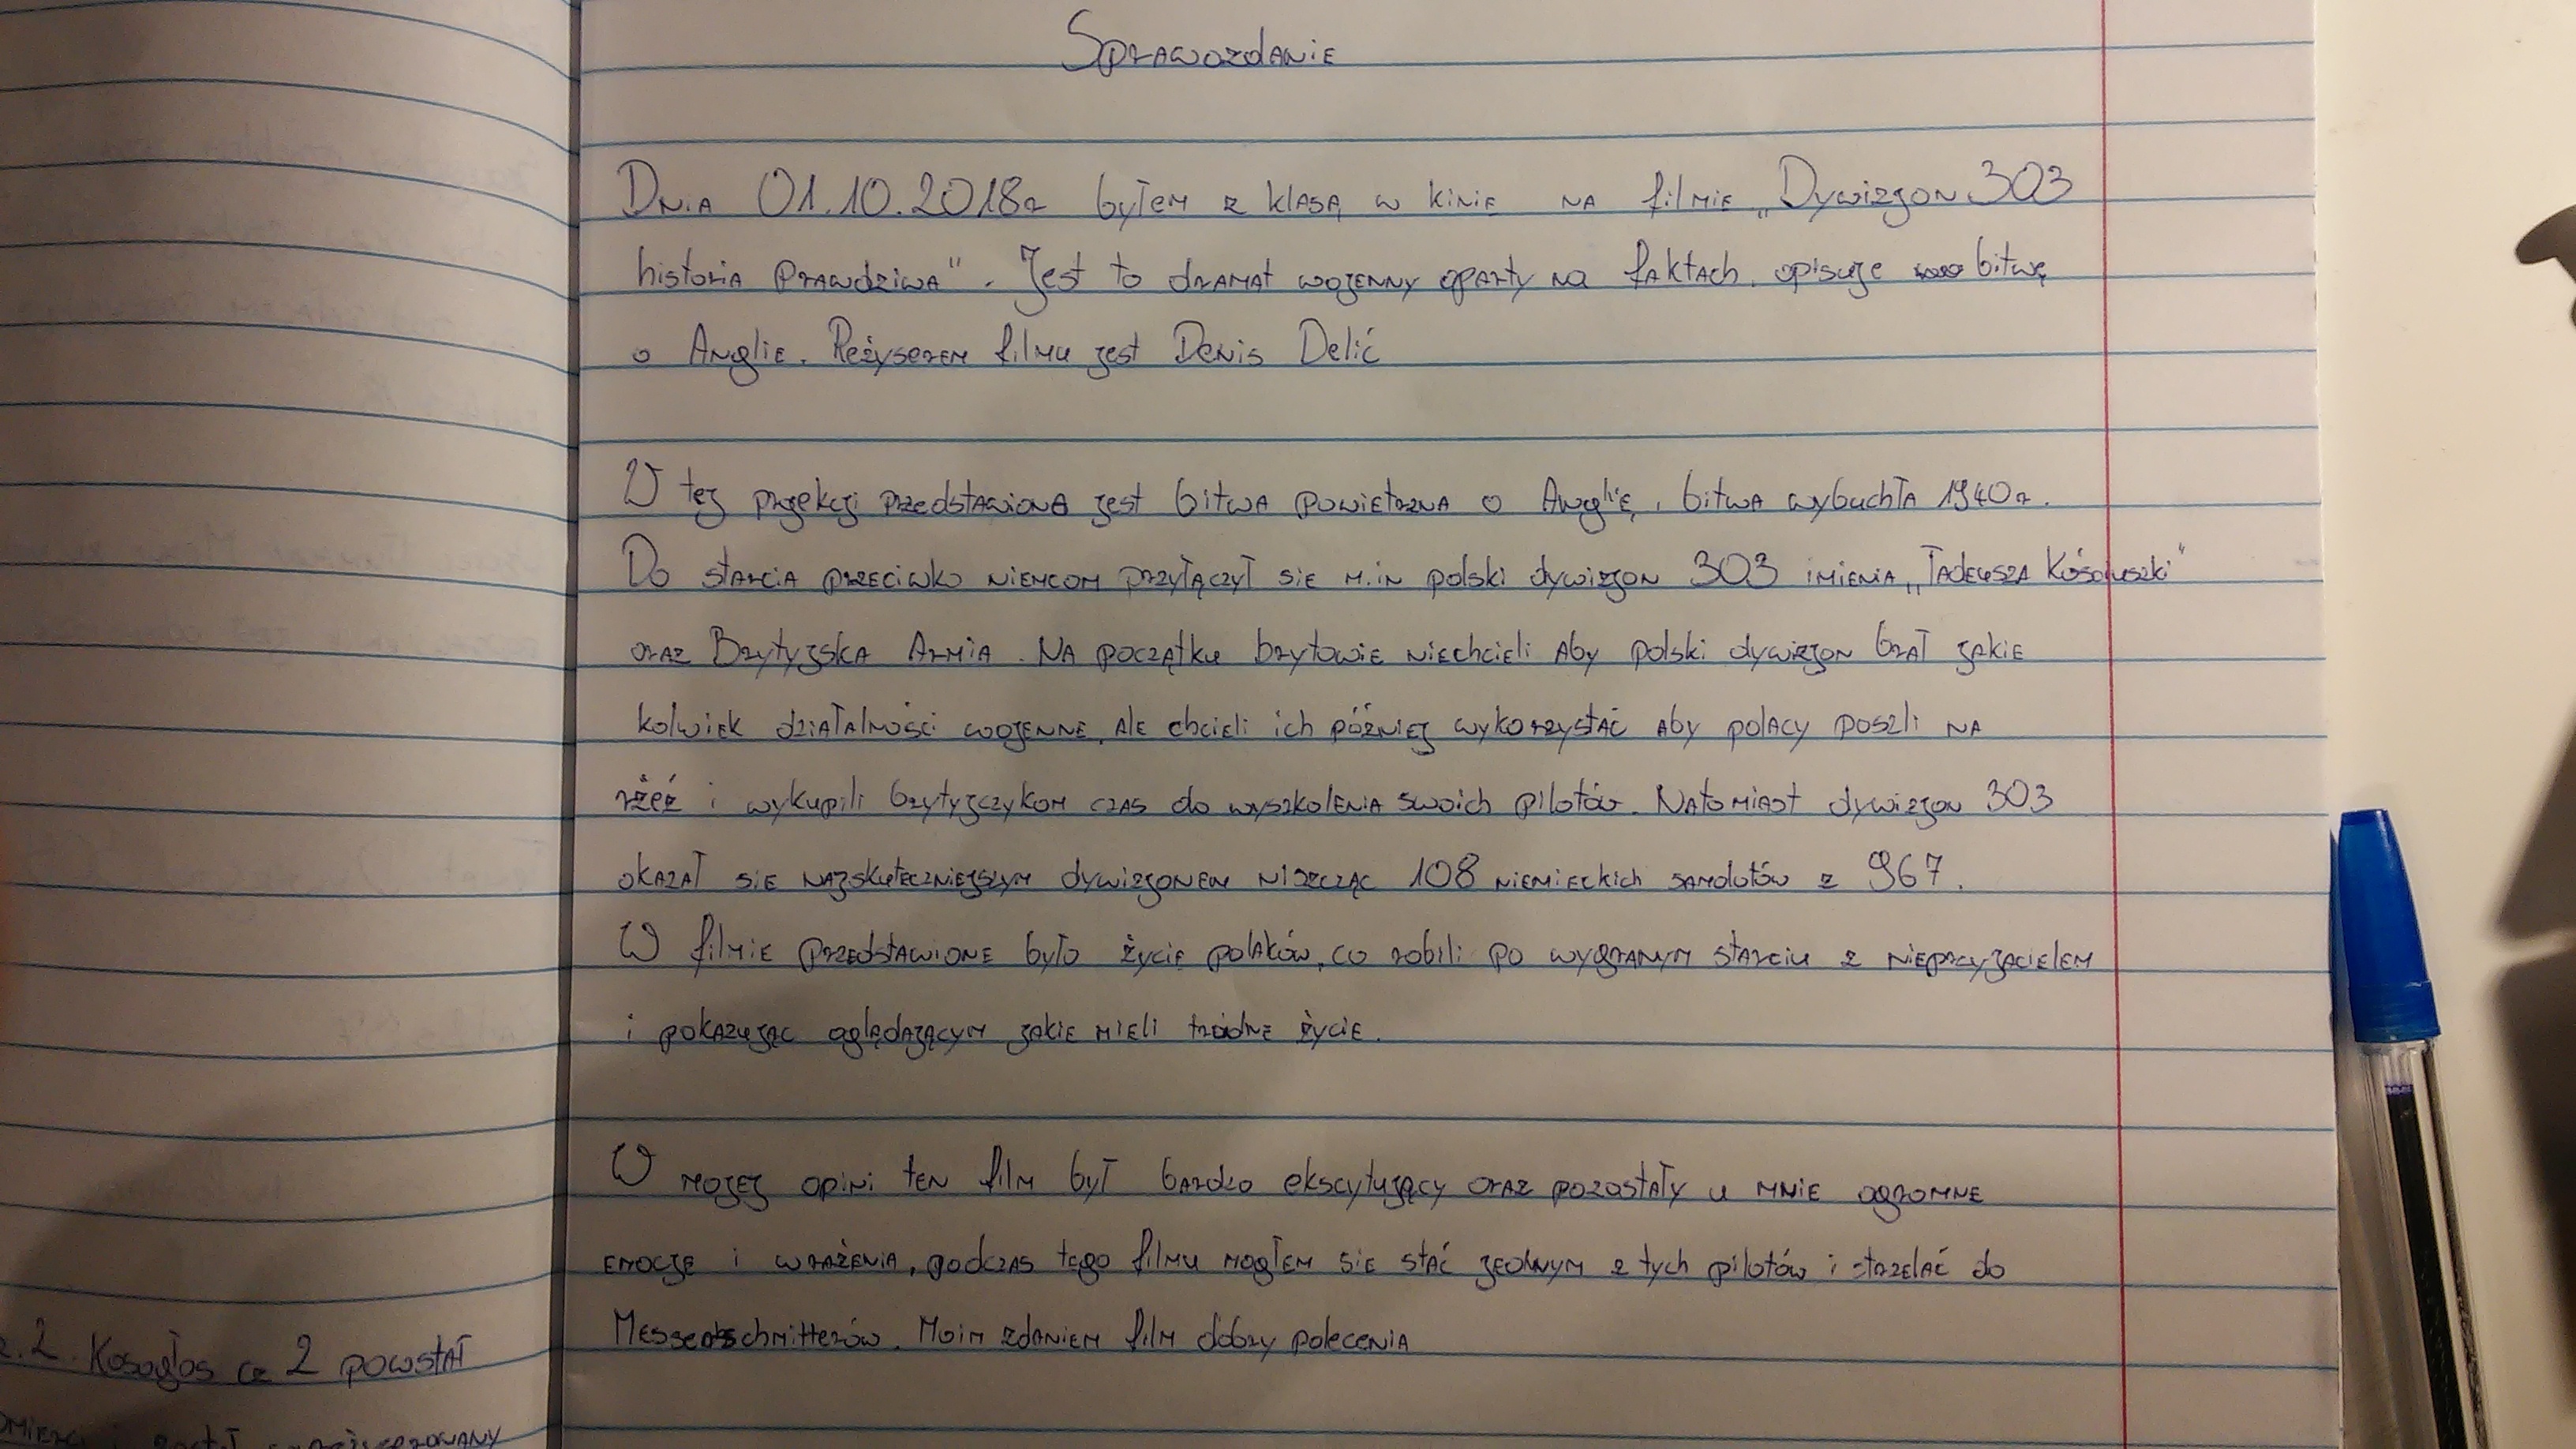 Sprawozdanie
Dnia 01.10.2018r byłem z klasą w kinie na filmie „Dywizjon 303
historia prawdziwa". Jest to dramat wojenny oparty na faktach. opisuje bitwę
o Anglie. Reżyserem filmu jest Denis Delić
W tej projekcji przedstawiona jest bitwa powietrzna o Anglię, bitwa wybuchła 1940r.
Do starcia przeciwko niemcom przyłączył sie m.in polski dywizjon 303 imienia „Tadeusza Kósciuszki"
oraz Brytyjska Armia. Na początku brytowie niechcieli aby polski dywizjon brał jakie
kolwiek działalności wojenne, ale chcieli ich później wykorzystać aby polacy poszli na
rżeź i wykupili brytyjczykom czas do wyszkolenia swoich pilotów. Natomiast dywizjon 303
okazał sie najskuteczniejszym dywizjonem niszcząc 108 niemieckich samolotów z 967.
W filmie przedstawione było życie polaków, co robili po wygranym starciu z nieprzyjacielem
i pokazując oglądającym jakie mieli trudne życie.
W mojej opini ten film był bardzo ekscytujący oraz pozostały u mnie ogromne
emocje i wrażenia, podczas tego filmu mogłem sie stać jednym z tych pilotów i strzelać do
Messerschmitterów. Moim zdaniem film dobry polecenia
2. Kosogłos cz 2 powstał